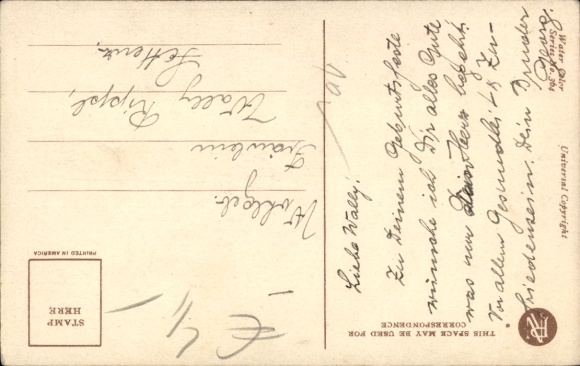 Water Color
Series No. 364
Universal Copyright
THIS SPACE MAY BE USED FOR
CORRESPONDENCE
Liebe Wally!
Zu Deinem Geburtsfeste
wünsche ich Dir alles Gute
was nur Dein Herz begehrt,
vor allem Gesundheit & Zu-
friedenheim. Dein Bruder
Georg.
STAMP
HERE
PRINTED IN AMERICA
Wohlgeb.
Fräulein
Wally Rippl,